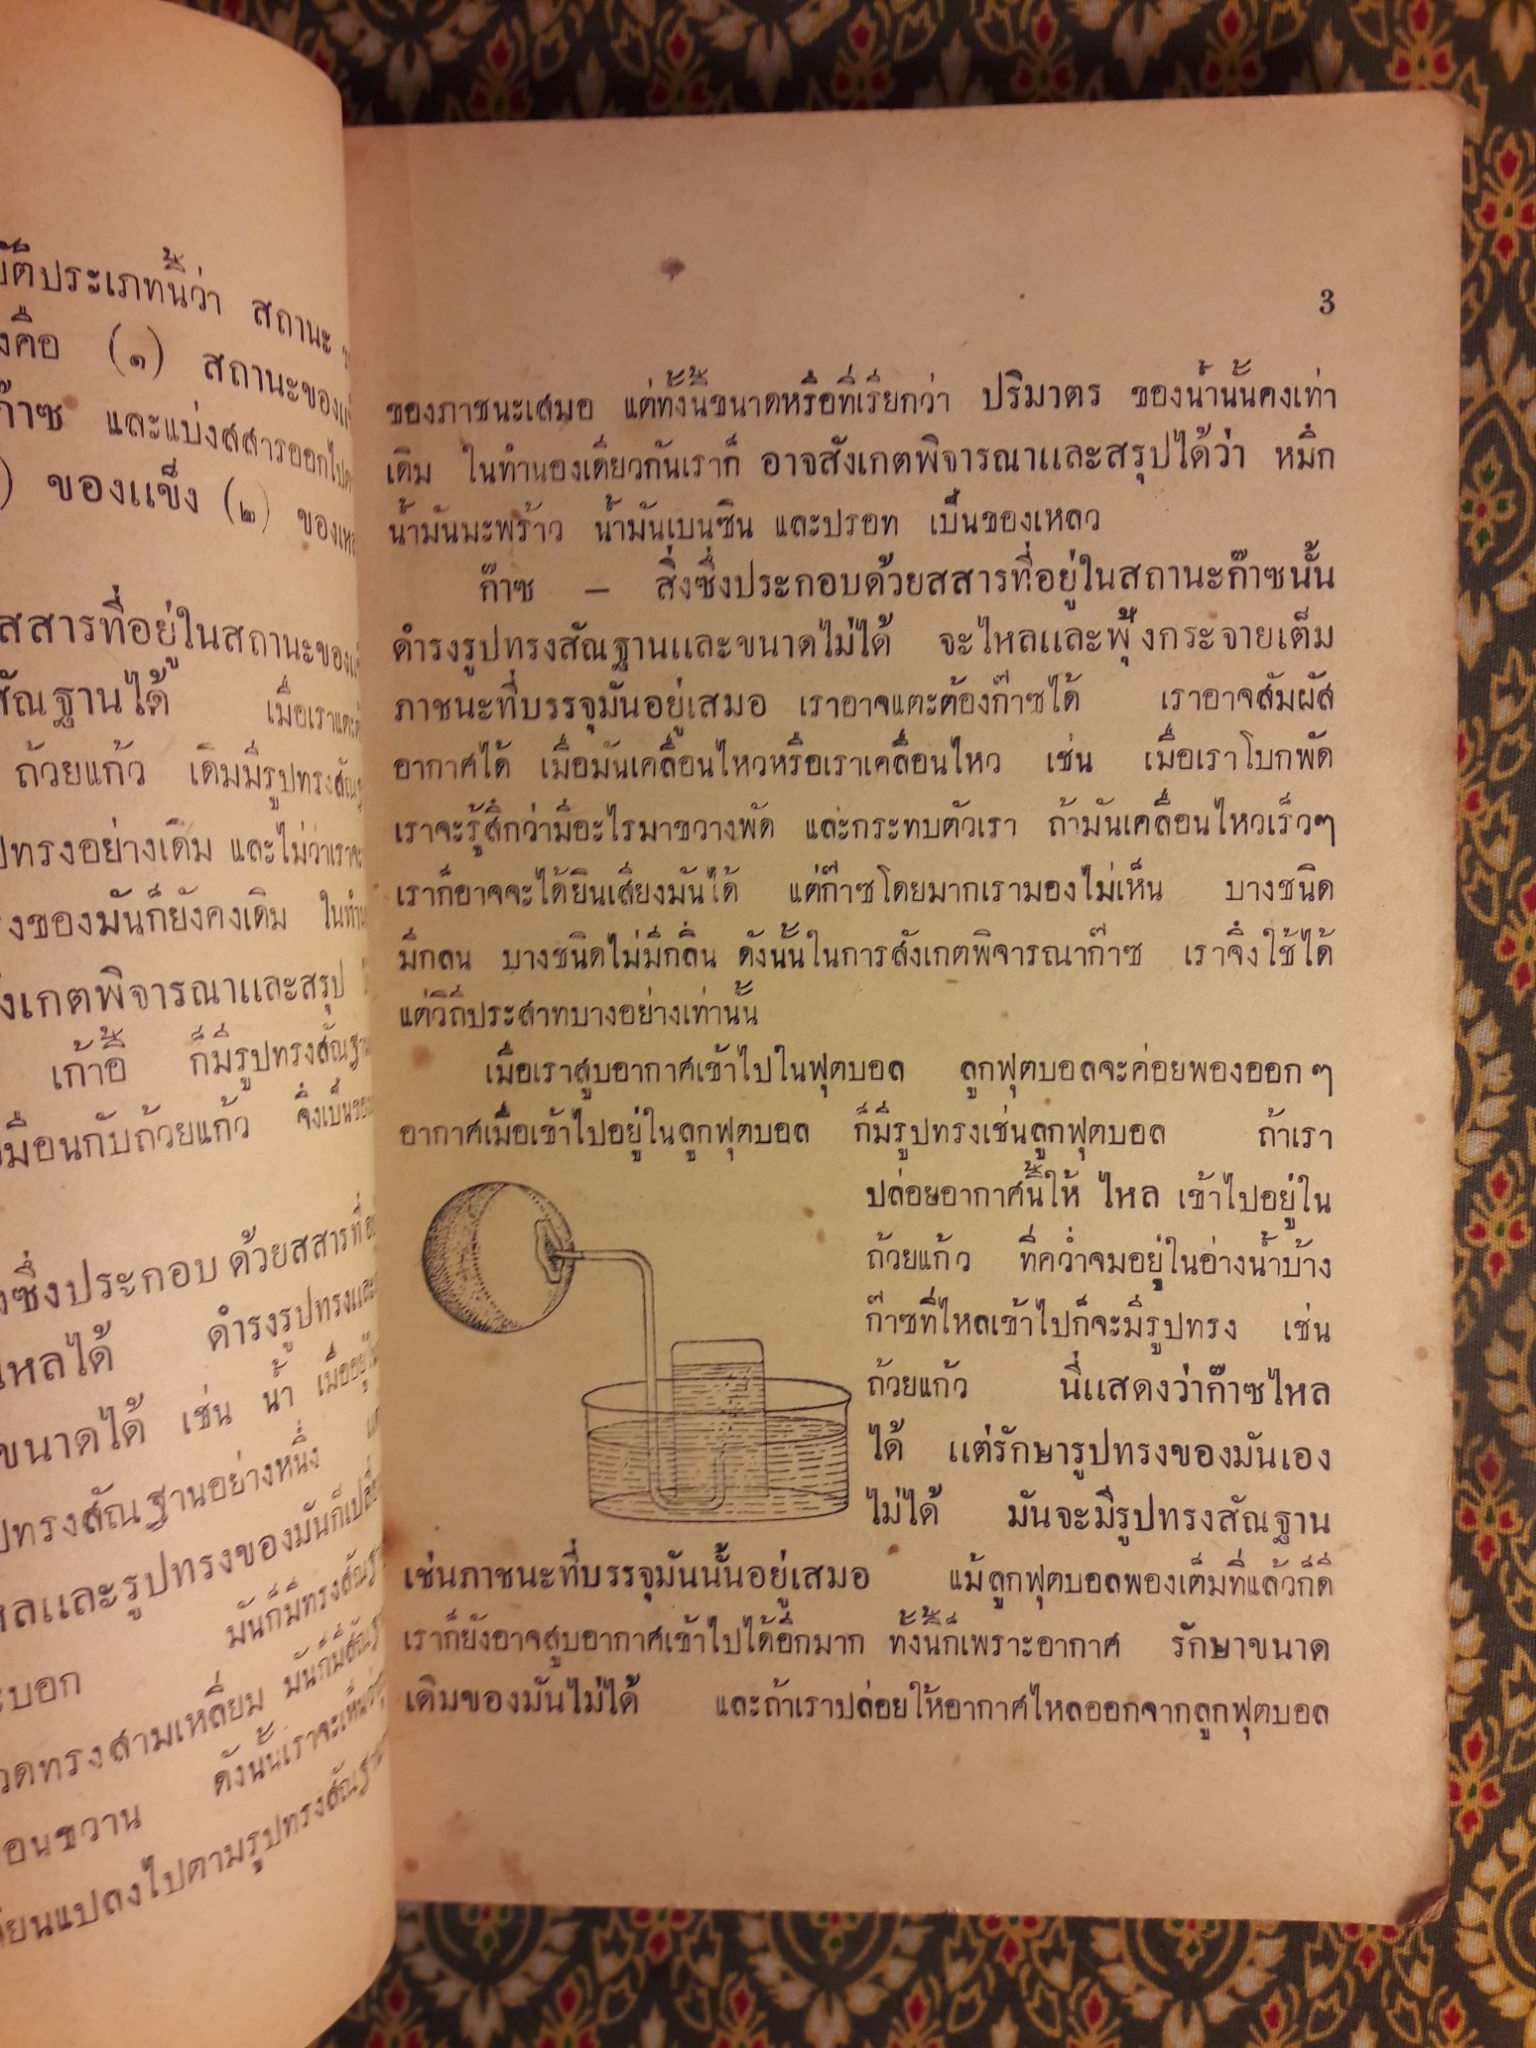 บัติประเภทนี้ว่า สถานะ
งคือ (๑) สถานะของแข็
ก๊าซ และแบ่งสสารออกไป
) ของแข็ง (๒) ของเหล
สสารที่อยู่ในสถานะของแข็
สัณฐานได้ เมื่อเราแตะต้
ถ้วยแก้ว เดิมมีรูปทรงสัณฐ
ปทรงอย่างเดิม และไม่ว่าเราจะ
งของมันก็ยังคงเดิม ในทำน
ังเกตพิจารณาและสรุป
เก้าอี้ ก็มีรูปทรงสัณฐ
หมือนกับถ้วยแก้ว จึงเป็นของ
งซึ่งประกอบด้วยสสารที่อ
ไหลได้ ดำรงรูปทรงและ
ขนาดได้ เช่น น้ำ เมื่ออยู่ใ
ปทรงสัณฐานอย่างหนึ่ง
หลและรูปทรงของมันก็เปลี่
ะบอก มันก็มีทรงสัณฐ
วดทรงสามเหลี่ยม มันก็มีสัณฐ
อนขวาน ดังนั้นเราจะเห็น
ี่ยนแปลงไปตามรูปทรงสัณฐาน
3
ของภาชนะเสมอ แต่ทั้งนี้ขนาดหรือที่เรียกว่า ปริมาตร ของน้ำนั้นคงเท่า
เดิม ในทำนองเดียวกันเราก็ อาจสังเกตพิจารณาและสรุปได้ว่า หมึก
น้ำมันมะพร้าว น้ำมันเบนซิน และปรอท เป็นของเหลว
ก๊าซ — สิ่งซึ่งประกอบด้วยสสารที่อยู่ในสถานะก๊าซนั้น
ดำรงรูปทรงสัณฐานและขนาดไม่ได้ จะไหลและพุ้งกระจายเต็ม
ภาชนะที่บรรจุมันอยู่เสมอ เราอาจแตะต้องก๊าซได้ เราอาจสัมผัส
อากาศได้ เมื่อมันเคลื่อนไหวหรือเราเคลื่อนไหว เช่น เมื่อเราโบกพัด
เราจะรู้สึกว่ามีอะไรมาขวางพัด และกระทบตัวเรา ถ้ามันเคลื่อนไหวเร็วๆ
เราก็อาจจะได้ยินเสียงมันได้ แต่ก๊าซโดยมากเรามองไม่เห็น บางชนิด
มีกลิ่น บางชนิดไม่มีกลิ่น ดังนั้นในการสังเกตพิจารณาก๊าซ เราจึงใช้ได้
แต่วิถีประสาทบางอย่างเท่านั้น
เมื่อเราสูบอากาศเข้าไปในฟุตบอล ลูกฟุตบอลจะค่อยพองออกๆ
อากาศเมื่อเข้าไปอยู่ในลูกฟุตบอล ก็มีรูปทรงเช่นลูกฟุตบอล ถ้าเรา
ปล่อยอากาศนี้ให้ ไหล เข้าไปอยู่ใน
ถ้วยแก้ว ที่คว่ำจมอยู่ในอ่างน้ำบ้าง
ก๊าซที่ไหลเข้าไปก็จะมีรูปทรง เช่น
ถ้วยแก้ว นี่แสดงว่าก๊าซไหล
ได้ แต่รักษารูปทรงของมันเอง
ไม่ได้ มันจะมีรูปทรงสัณฐาน
เช่นภาชนะที่บรรจุมันนั้นอยู่เสมอ แม้ลูกฟุตบอลพองเต็มที่แล้วก็ดี
เราก็ยังอาจสูบอากาศเข้าไปได้อีกมาก ทั้งนี้ก็เพราะอากาศ รักษาขนาด
เดิมของมันไม่ได้ และถ้าเราปล่อยให้อากาศไหลออกจากลูกฟุตบอล